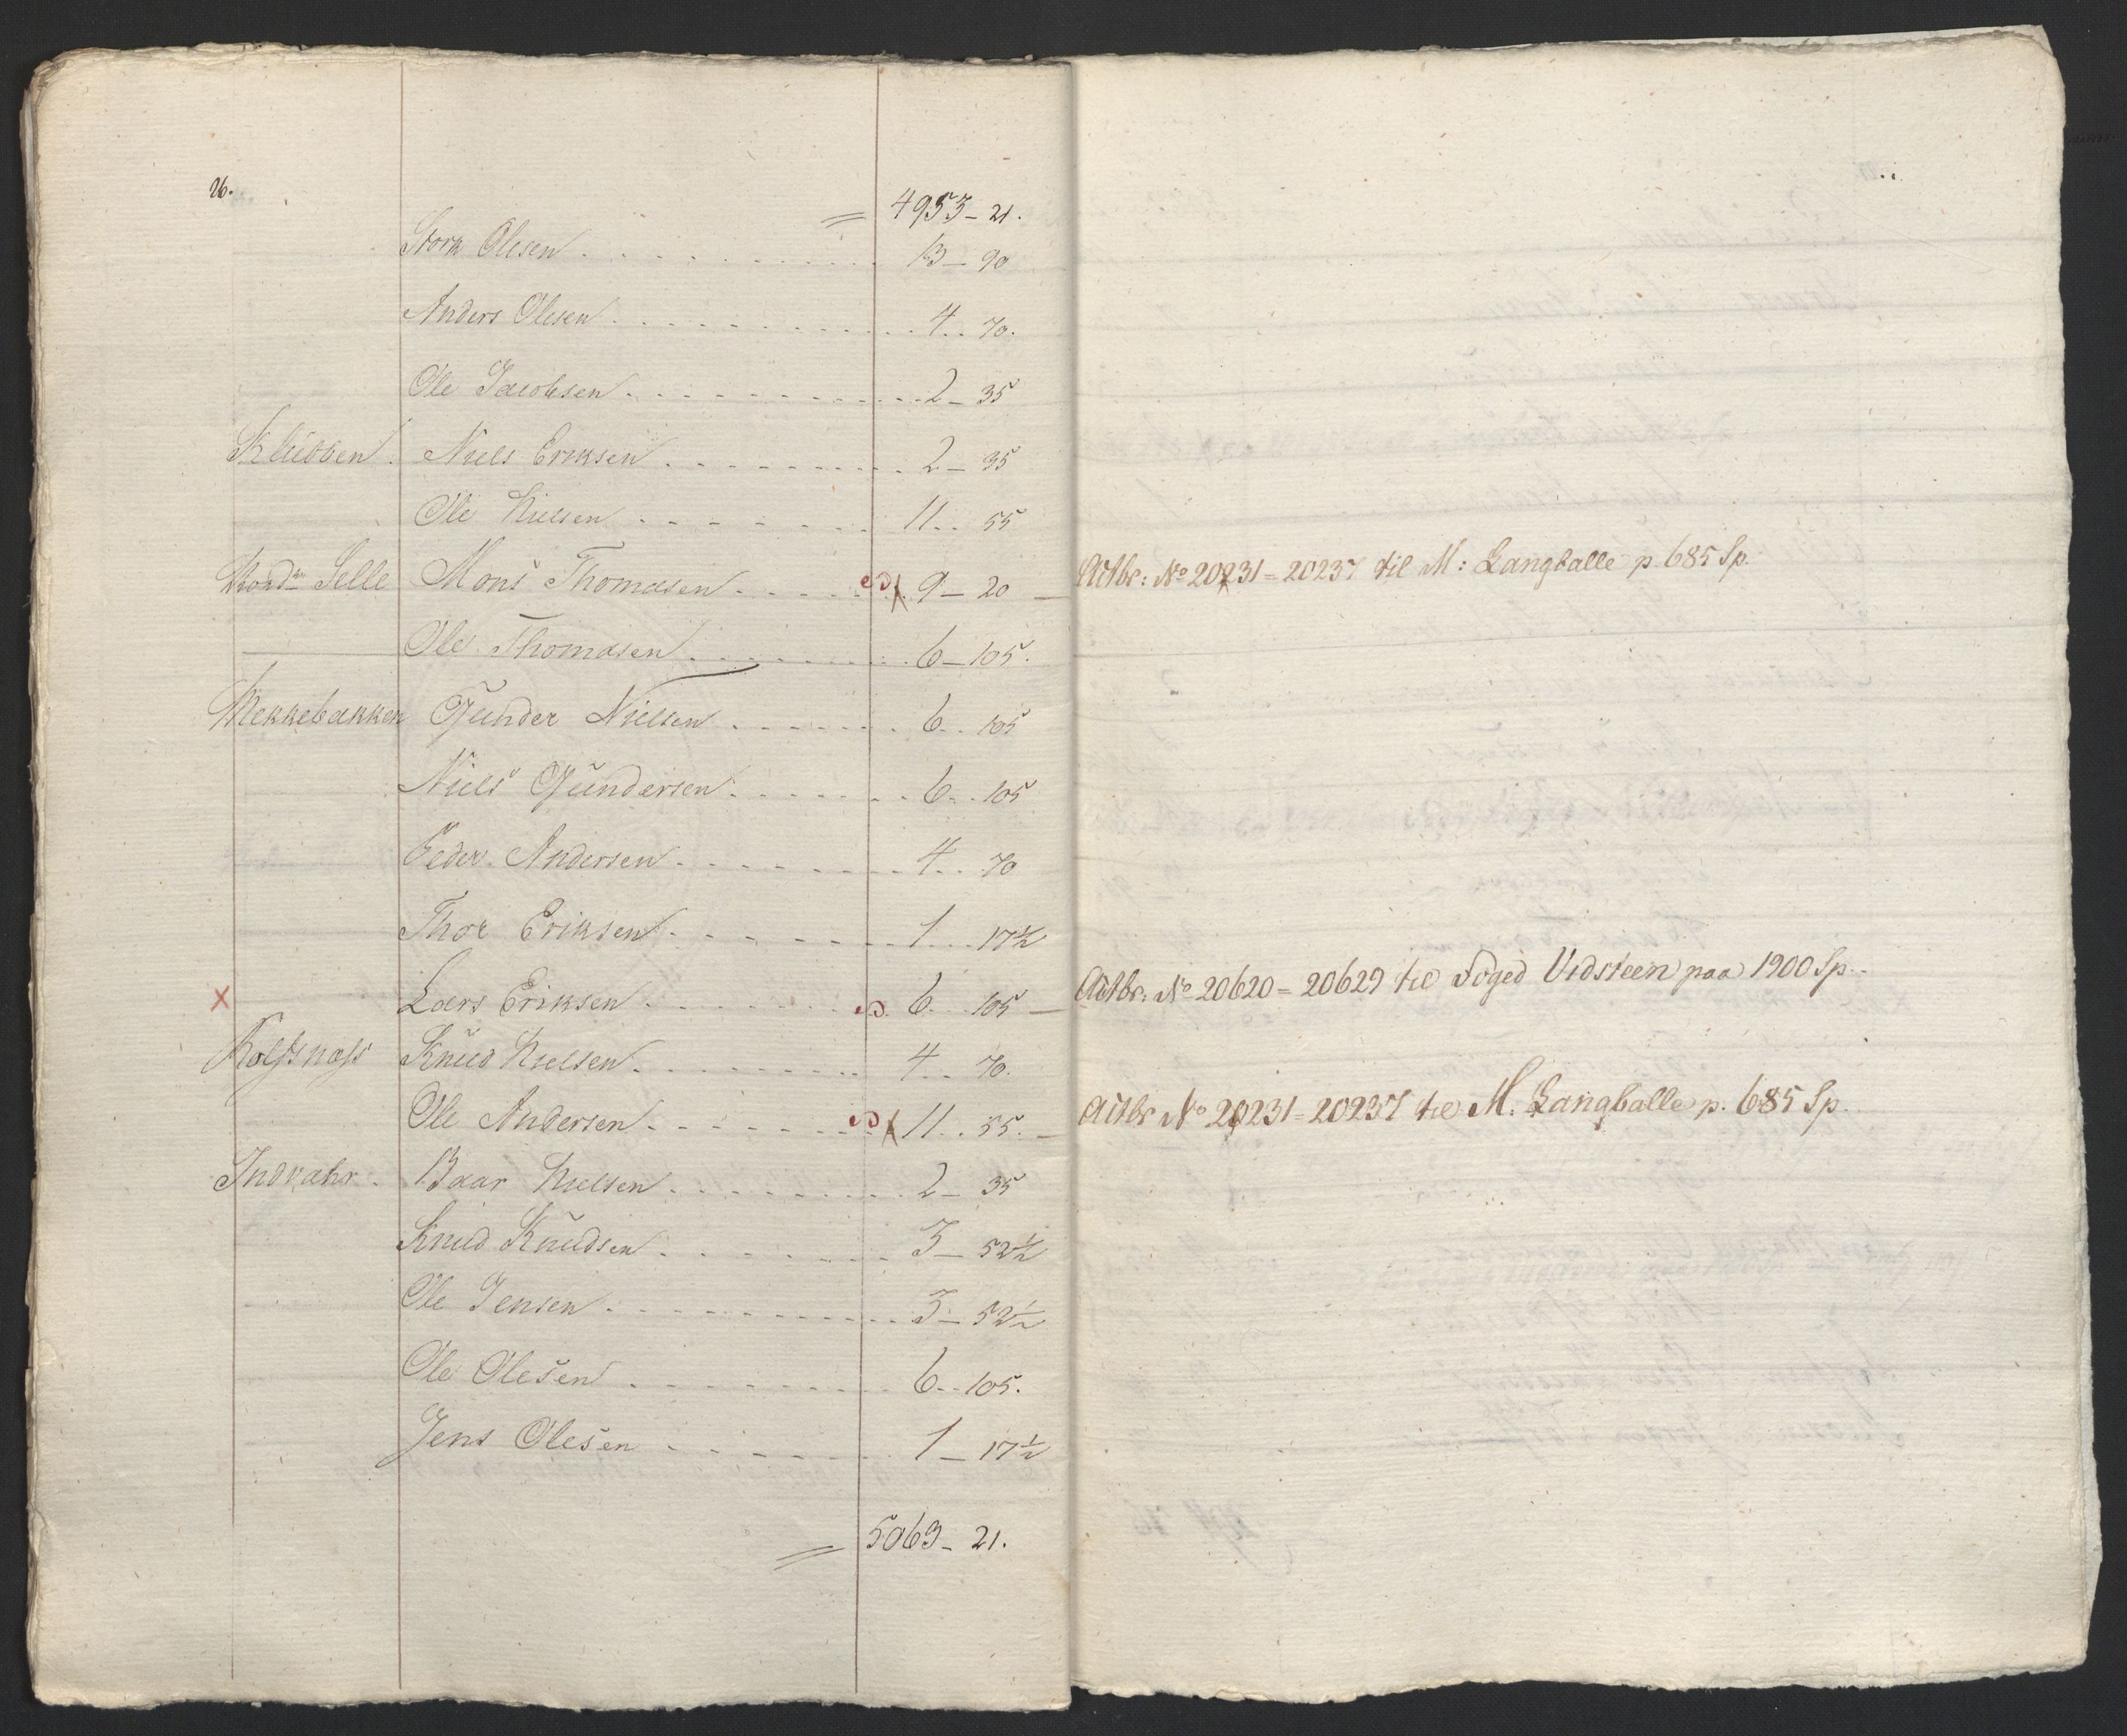 26.
= 4953 – 21.
Stork Olesen . . . . . . . . . . 13 – 90
Anders Olesen . . . . . . . . . . 4 . . 70.
Ole Jacobsen . . . . . . . . . . 2 – 35
Klubben . Niels Eriksen . . . . . . . . . . 2 – 35
Ole Nielsen . . . . . . . 11 . . 55
Nordr Selle Mons Thomasen . . . . . . 9 – 20 – Actbr: No 20231 = 20237 til M: Langballe p. 685 Sp.
Ole Thomasen . . . . . . . . . . 6 – 105.
Mekkebakken Gunder Nielsen . . . . . . . 6 . . 105
Niels Gundersen . . . . . . . 6 . . 105
Peder Andersen . . . . . . . . 4 . . 70
Thor Eriksen . . . . . . . . 1 . . . 17½
x Lars Eriksen . . . . . . . . 6 . . 105 – Actbr: No 20620 = 20629 til Foged Vidsteen paa 1900 Sp.
Rolfsnæss Knud Nielsen . . . . . . . . . 4 . . 70.
Ole Andersen . . . . . . . . 11 . . 55. – Actbr No 20231 = 20237 til M. Langballe p. 685 Sp.
Indvahr . Baar Nielsen . . . . . . . . . 2 – 35
Knud Knudsen . . . . . . . 3 – 52½
Ole Jensen . . . . . . . . . . 3 – 52½
Ole Olesen . . . . . . . . . 6 . . 105.
Jens Olesen . . . . . . . 1 – 17½
= 5063 – 21.